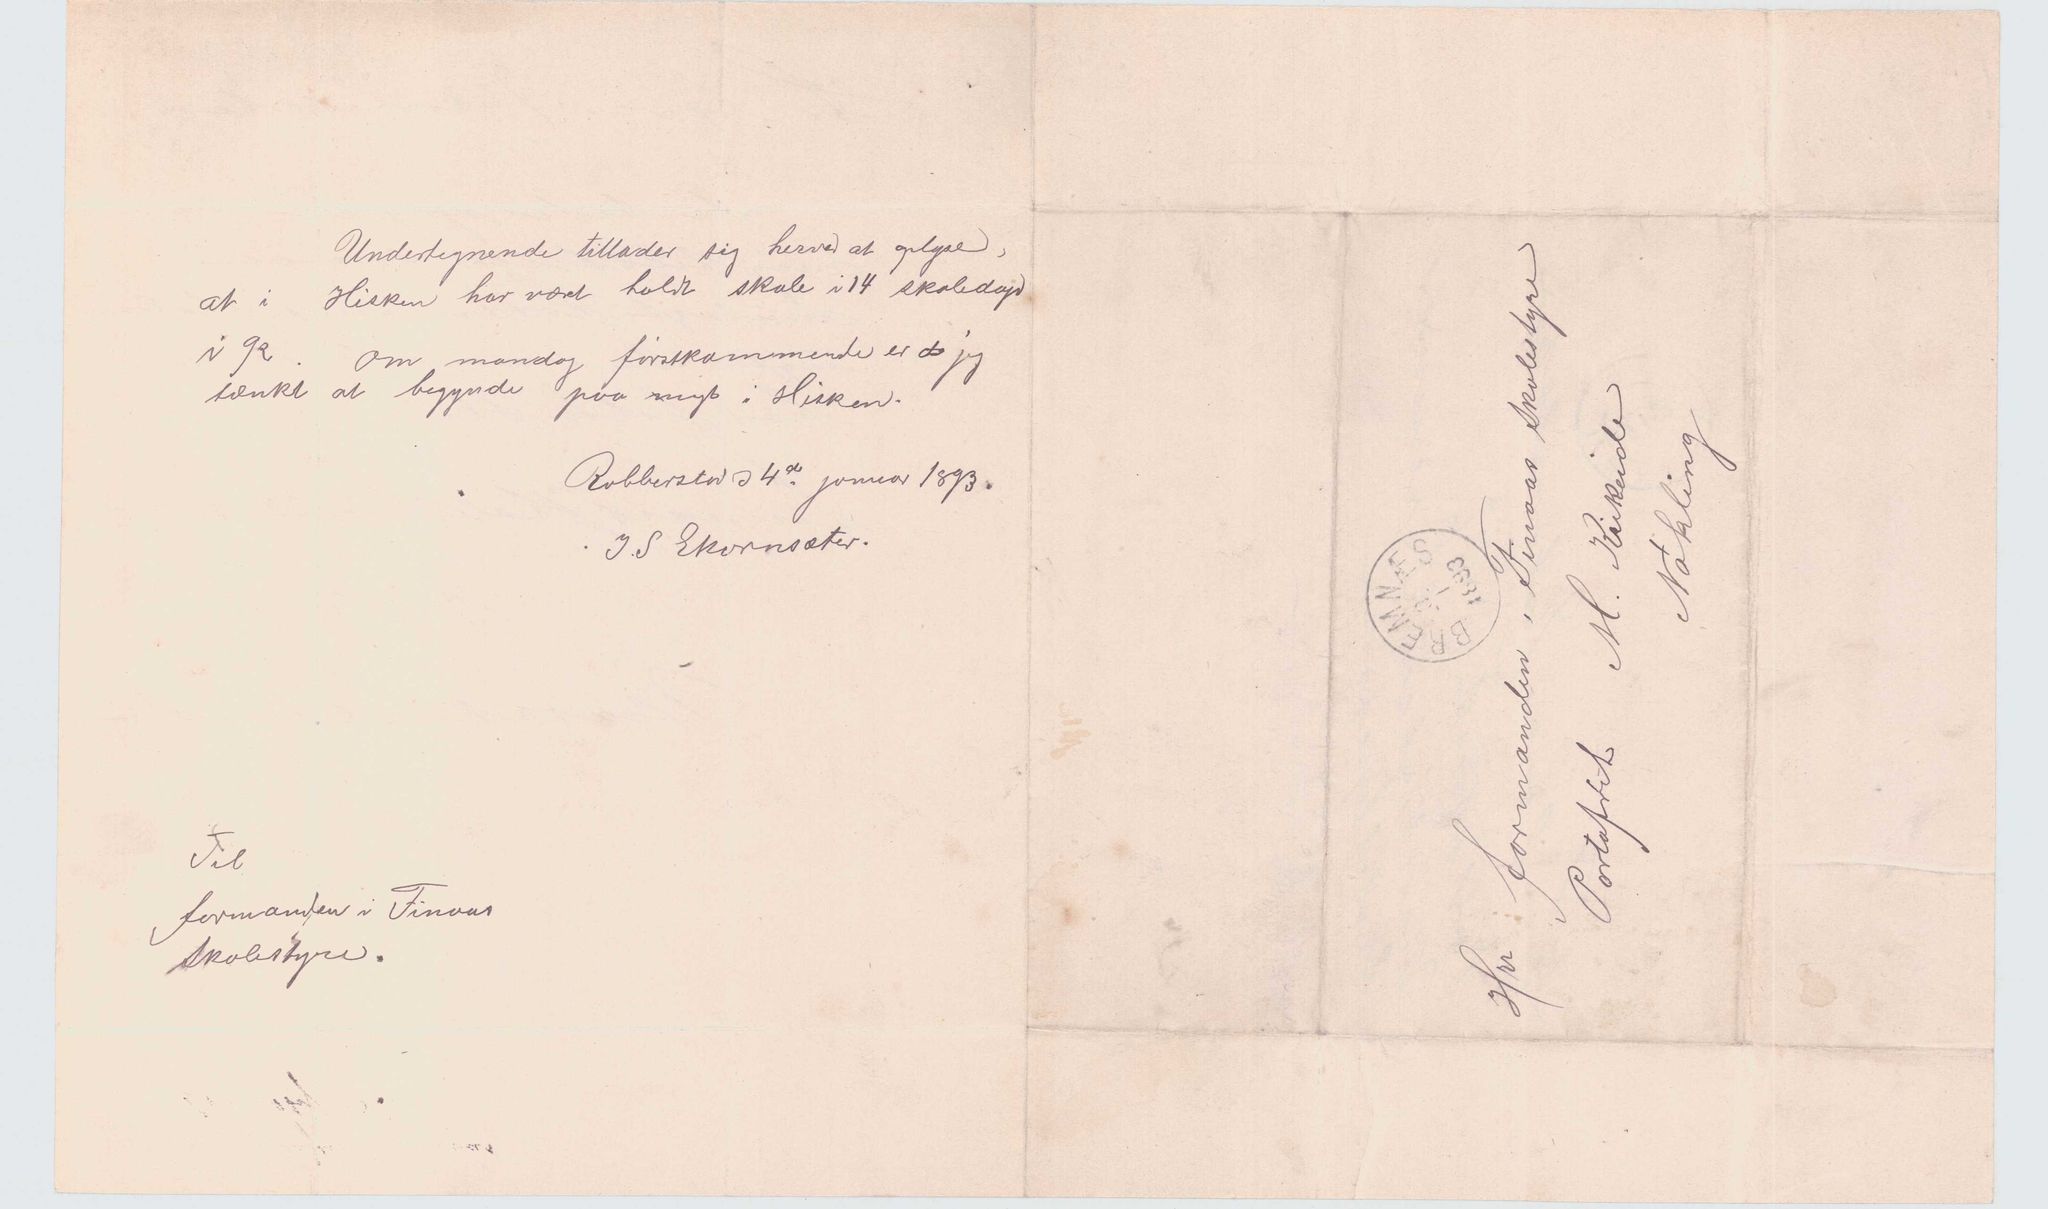 Undertegnende tillader sig herved at oplyse,
at i Hisken har været holdt skole i 14 skoledage
i 92. Om mandag førstkommende er jeg
tænkt at begynde paa nyt i Hisken.
Robberstad d 4de januar 1893.
J.S Ekornsæter.
Til
formanden i Finaas
skolestyre.
Hrr formanden i Finaas skolestyre
M. Kiikeide
Portofrit
Nøkling
BREMNÆS
1893